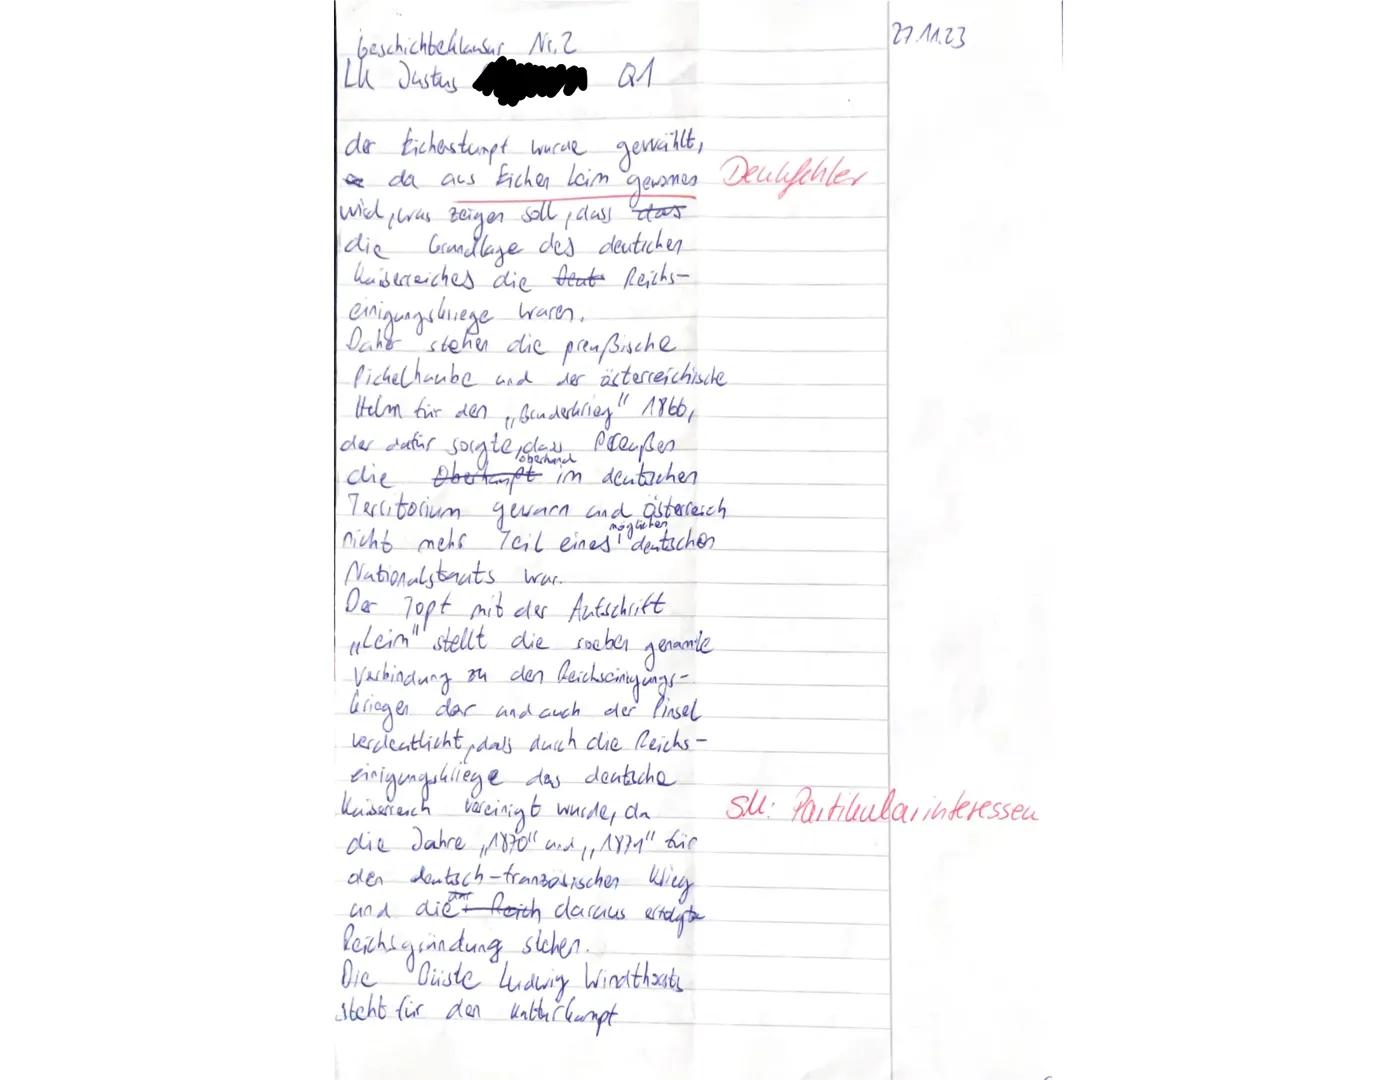 Geschichteklausur Nr. 2 27.11.23
LK Justus Q1
der Eichenstumpf wurde gewählt,
da aus Eichen Leim gewonnen Denkfehler
wird, was zeigen soll, dass das
die Grundlage des deutschen
Kaiserreiches die Reichs-
einigungskriege waren.
Daher stehen die preußische
Pickelhaube und der österreichische
Helm für den „Bruderkrieg" 1866,
der dafür sorgte, dass Preußen
die Oberhaupt oberhand im deutschen
Territorium gewann und Österreich
nicht mehr Teil eines möglichen deutschen
Nationalstaats war.
Der Topf mit der Aufschrift
„Leim" stellt die soeben genannte
Verbindung zu den Reichseinigungs-
kriegen dar und auch der Pinsel
verdeutlicht, dass durch die Reichs-
einigungskriege das deutsche
Kaiserreich vereinigt wurde, da su: Partikularinteressen
die Jahre „1870" und „1871" für
den deutsch-französischen Krieg
und die Reich daraus erfolgte
Reichsgründung stehen.
Die Büste Ludwig Windthorsts
steht für den Kulturkampf